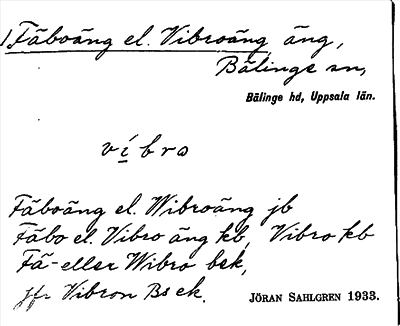 1 Fäboäng el. Vibroäng, äng,
Bälinge sn,
Bälinge hd, Uppsala län.
víbro
Fäboäng el. Wibroäng jb
Fäbo el. Vibro äng kb, Vibro kb
Fä- eller Wibro bsk,
jfr Vibron Bs ek.
JÖRAN SAHLGREN 1933.